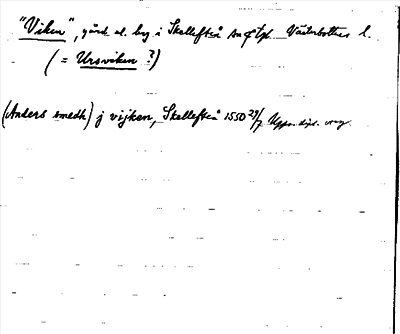 "Viken", gård el. by i Skellefteå Västerbottens l.
( = Ursviken ?)
(Anders smedh) j vijken, Skellefteå 1550 29/7 Upps. dipl.